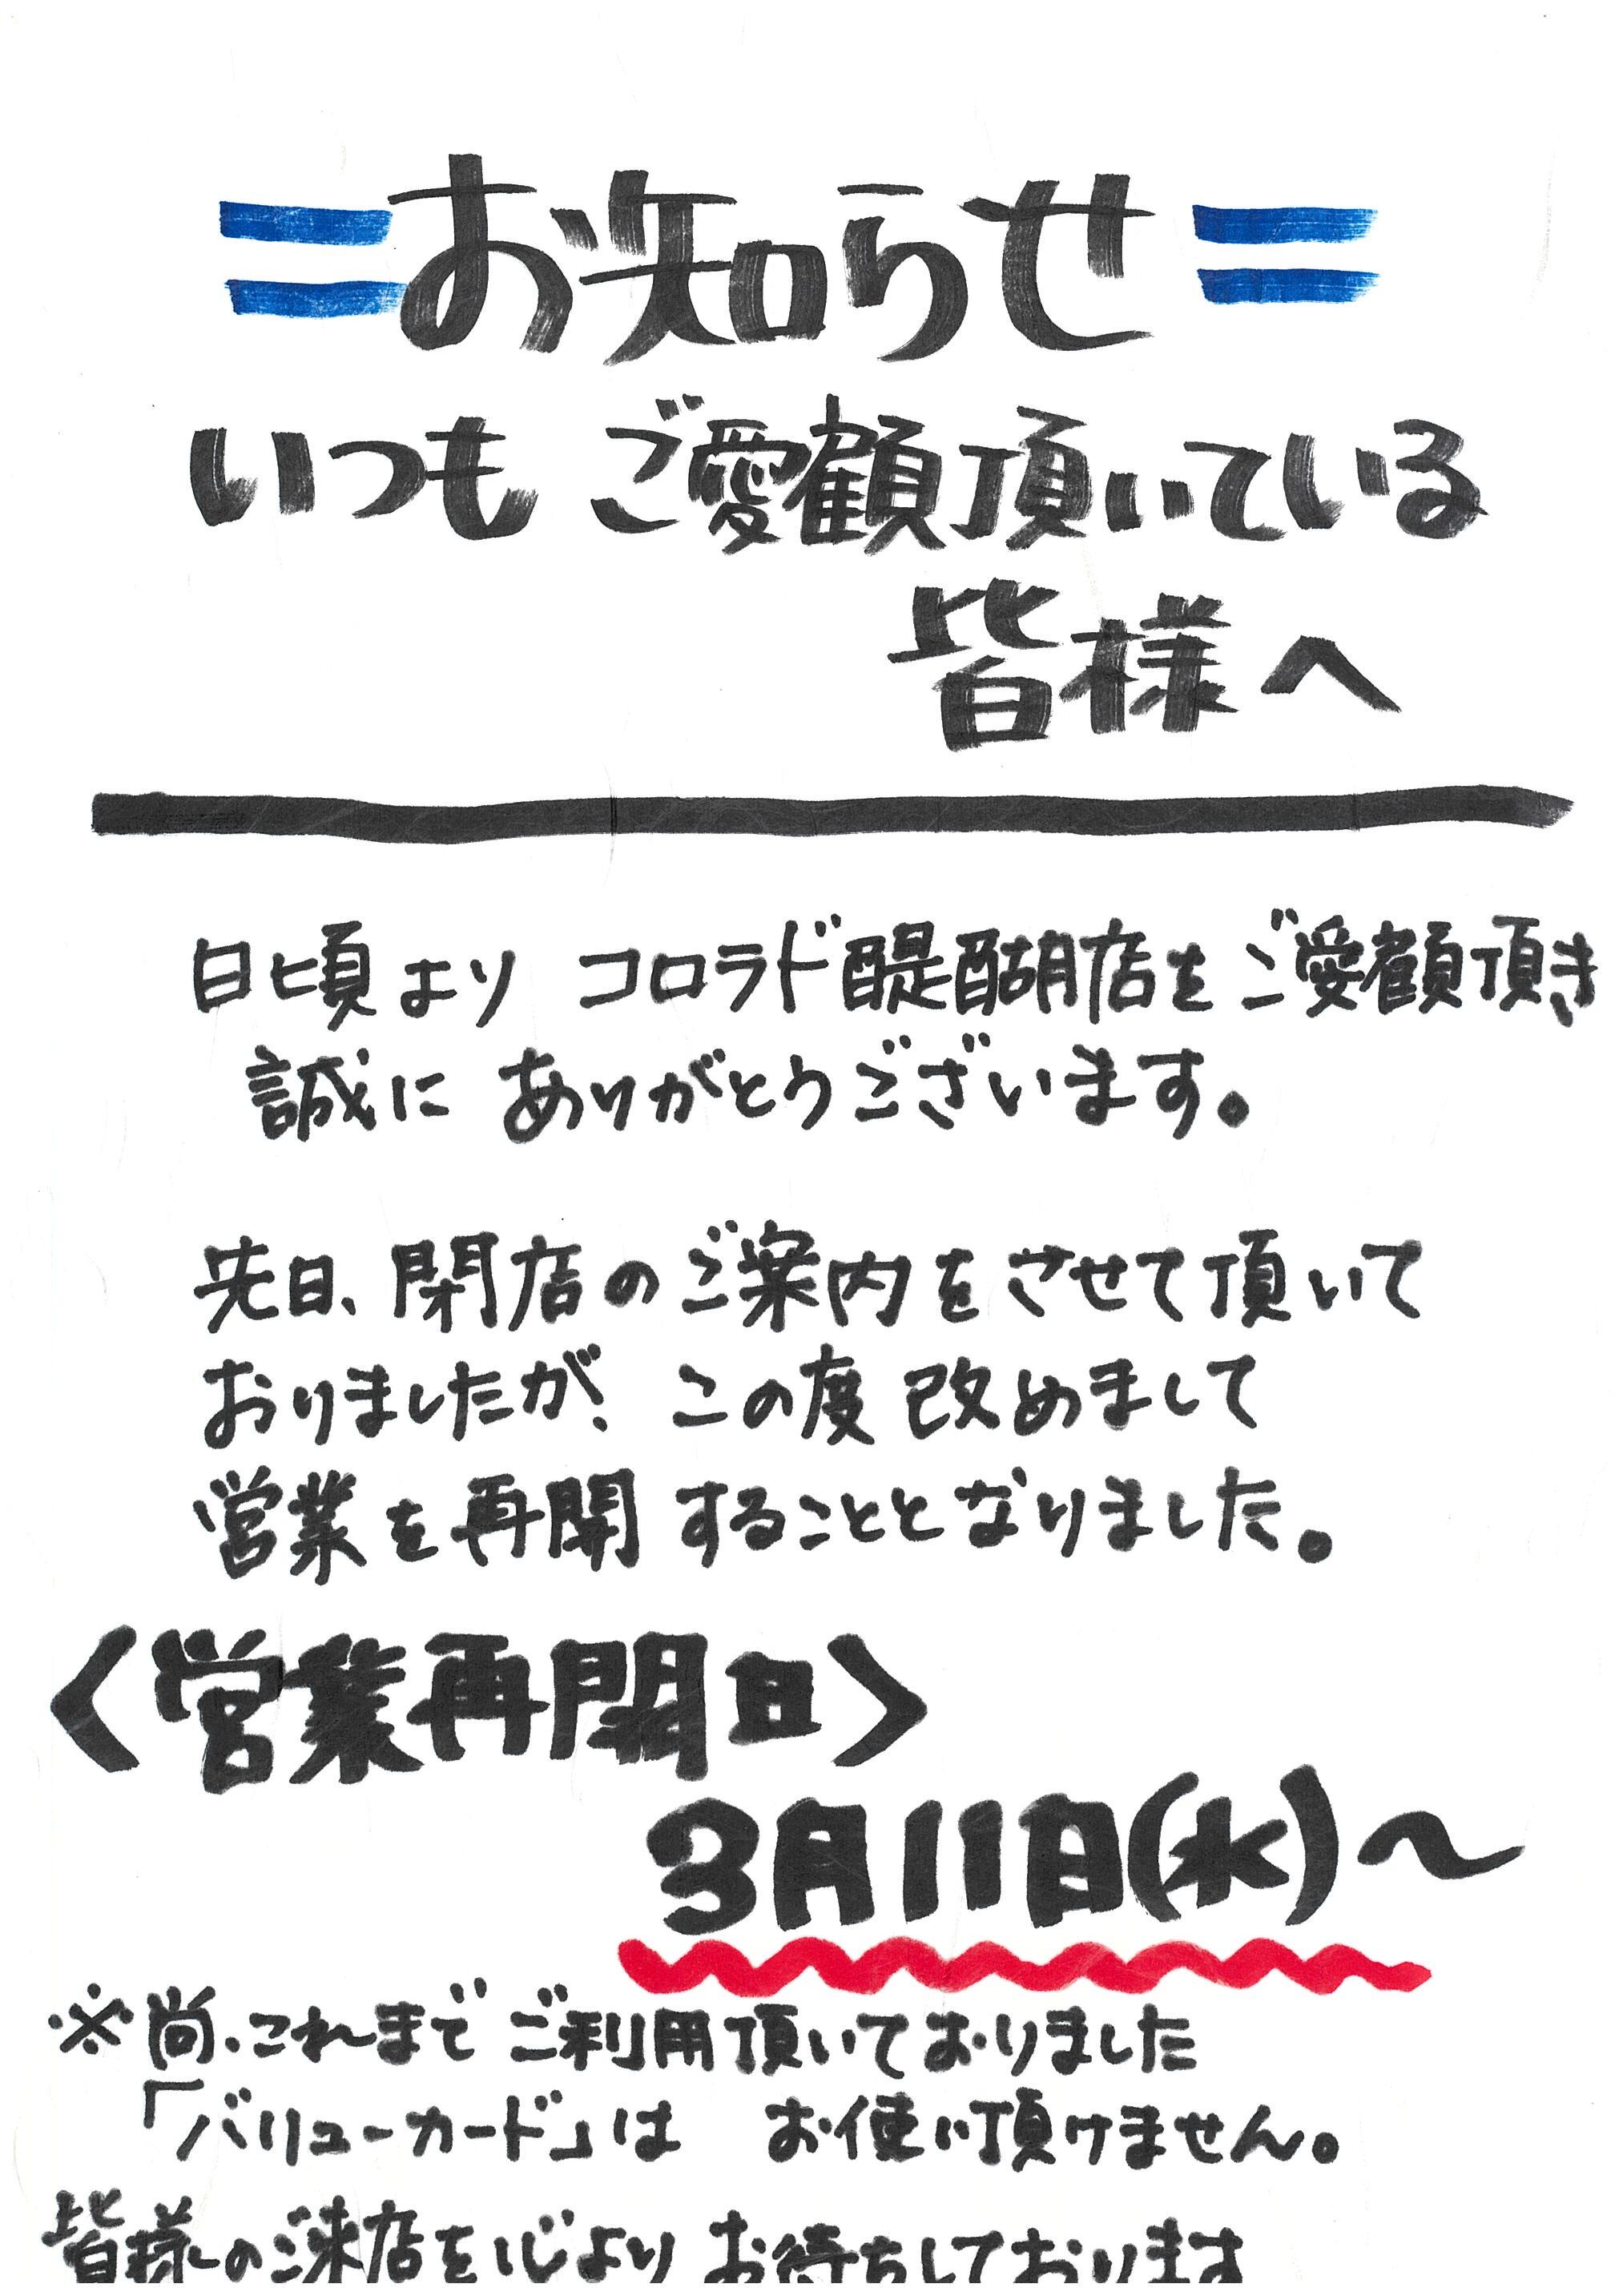 =お知らせ=
いつも ご愛顧頂いている
皆様へ
日頃より コロラド醍醐店をご愛顧頂き
誠に ありがとうございます。
先日、閉店のご案内をさせて頂いて
おりましたが、この度 改めまして
営業を再開することとなりました。
〈営業再開日〉
3月11日(水)~
※尚、これまで ご利用頂いておりました
「バリューカード」は お使い頂けません。
皆様のご来店を心より お待ちしております